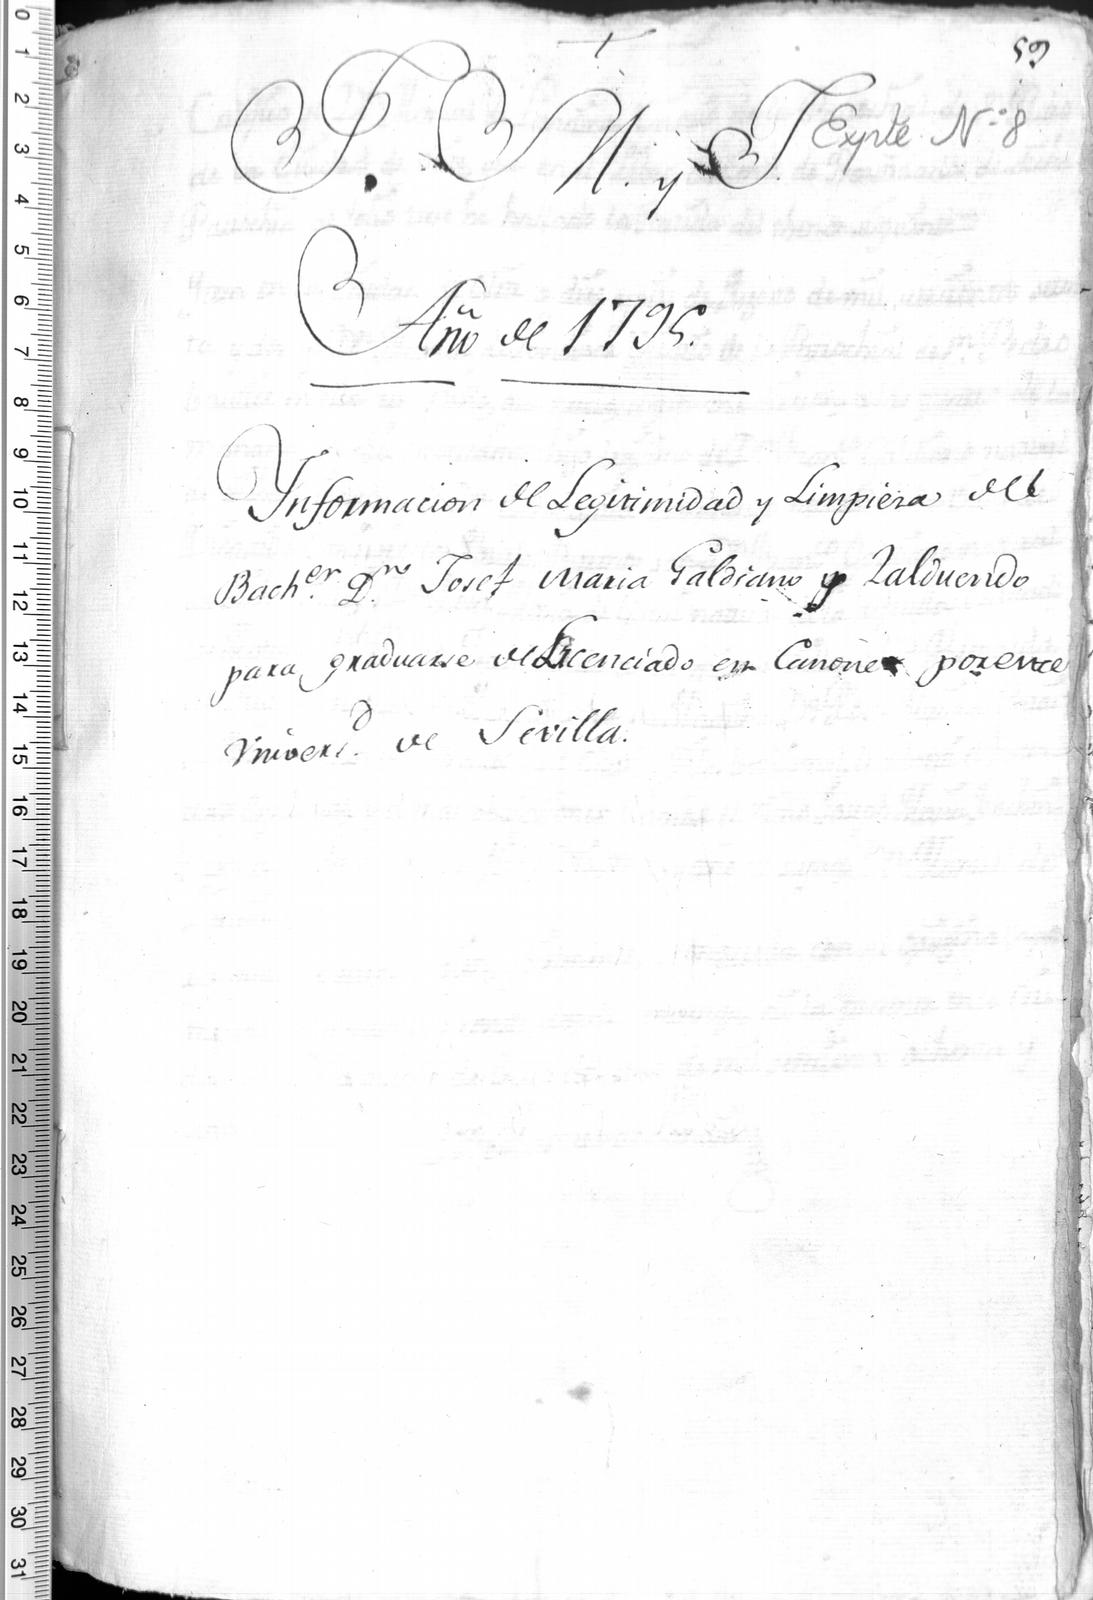 59
J. M. y J.
Expte N.º 8
Año de 1795.
Ynformacion de Legitimidad y Limpieza del
Bach.er D.n Josef Maria Galdiano y Zalduendo
para graduarse de Licenciado en Canones por esta
Univers.d de Sevilla.
0
1
2
3
4
5
6
7
8
9
10
11
12
13
14
15
16
17
18
19
20
21
22
23
24
25
26
27
28
29
30
31